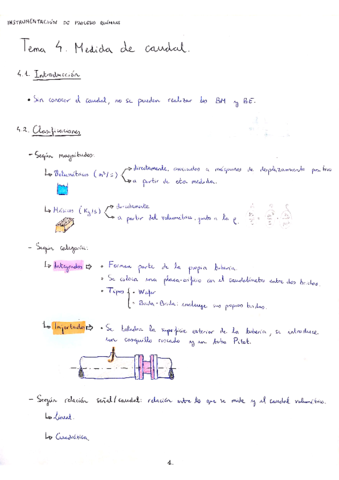 INSTRUMENTACIÓN DE PROCESO QUÍMICO
Tema 4. Medida de caudal.
4.1. Introducción
• Sin conocer el caudal, no se pueden realizar los BM y BE.
4.2. Clasificaciones
- Según magnitudes:
↳ Volumétrico (m³/s) directamente, asociados a máquinas de desplazamiento positivo
a partir de otras medidas.
↳ Másico (Kg/s) directamente
a partir del volumétrico, junto a la ρ.
- Según categoría:
↳ Integrados ⇒ • Forman parte de la propia tubería.
• Se coloca una placa-orificio con el caudalímetro entre dos bridas.
• Tipos • Wafer
• Brida-Brida: contiene sus propias bridas.
↳ Insertados ⇒ • Se taladra la superficie exterior de la tubería, se introduce
un casquillo roscado y un tubo Pitot.
- Según relación señal/caudal: relación entre lo que se mide y el caudal volumétrico.
↳ Lineal.
↳ Cuadrática.